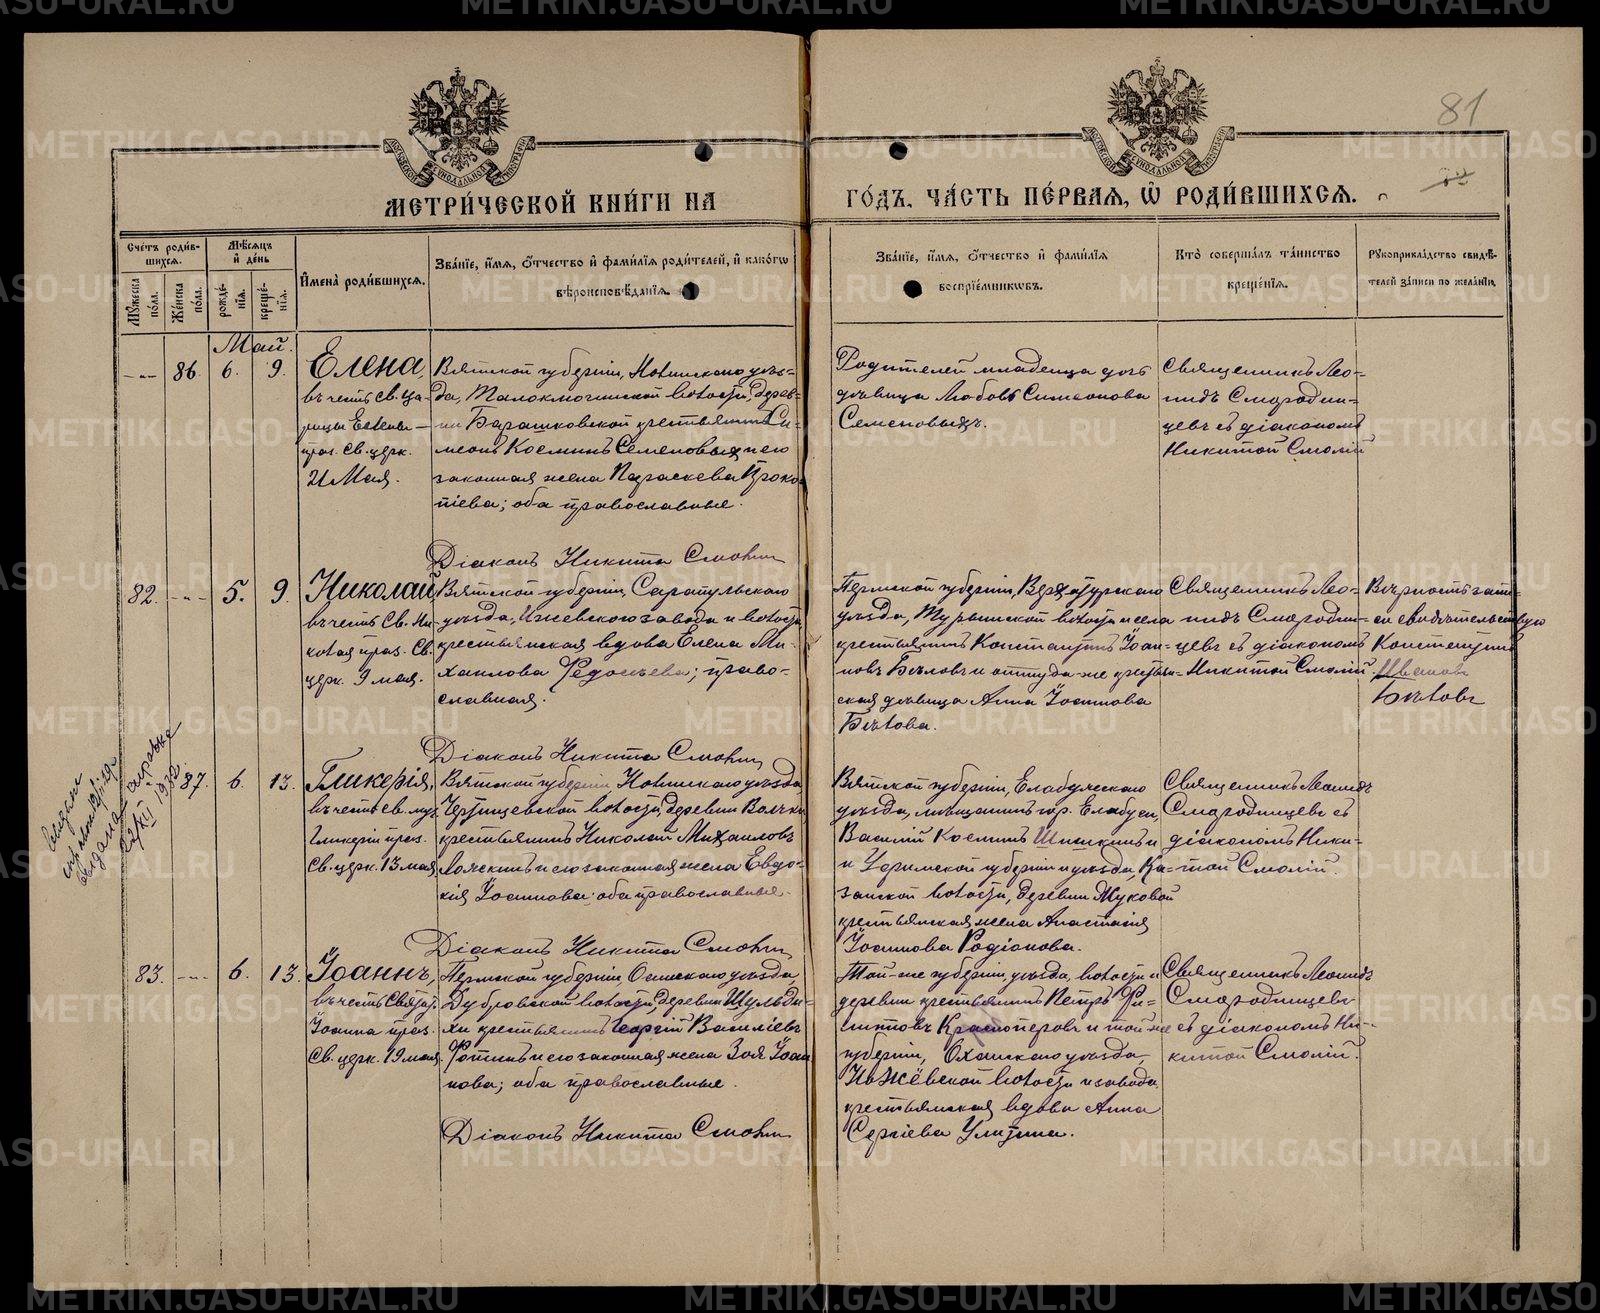 81
МЕТРИ́ЧЕСКОЙ КНИ́ГИ НА
ГО́ДЪ, ЧА́СТЬ ПЕ́РВАЯ, Ѡ҆ РОДИ́ВШИХСЯ.
Сче́тъ роди́в-
шихся.
Мѣ́сяцъ
и҆ де́нь
И҆мена̀ роди́вшихся.
Зва́нїе, и҆́мя, ѻ҆́тчество и҆ фами́лїя роди́телей, и҆ како́гѡ
вѣроисповѣ́данїя.
Му́жеска
по́ла.
Же́нска
по́ла.
рожде́-
нїя.
креще́-
нїя.
Зва́нїе, и҆́мя, ѻ҆́тчество и҆ фами́лїя
воспрїе́мниковъ.
Кто̀ соверша́лъ та́инство
креще́нїя.
Рꙋкоприкла́дство свидѣ́-
телей за́писи по жела́нїю.
Май.
86. 6. 9.
Елена,
въ честь св. ца-
рицы Елены
праз. Св. церк.
21 Мая.
Вятской губерніи, Нолинскаго уѣз-
да, волости, дерев-
ни Барашковской крестьянинъ Си-
меонъ Косминъ Семеновыхъ и его
законная жена Параскева Проко-
піева; оба православные.
Діаконъ Никита Смолин
Родителей младенца дочь
дѣвица Любовь Симеонова
Семеновыхъ.
Священникъ Лео-
нидъ Смородин-
цевъ съ діакономъ
Никитой Смолин
82. 5. 9.
Николай
въ честь Св. Ни-
колая праз. Св.
церк. 9 мая.
Вятской губерніи, Сарапульскаго
уѣзда, Ижевскаго завода и волости,
крестьянская вдова Елена Ми-
хаилова Федосѣева; право-
славная.
Діаконъ Никита Смолин
Пермской губерніи, Верхотурскаго
уѣзда, Туринской волости и села
крестьянинъ Константинъ Іоан-
новъ Бѣловъ и оттуда-же крестьян-
ская дѣвица Анна Іоаннова
Бѣлова.
Священникъ Лео-
нидъ Смородин-
цевъ съ діакономъ
Никитой Смолин
Вѣрность запи-
си свидѣтельствую
Константинъ
Ивановъ
Бѣловъ
выдана справка
22/XII 1932
87. 6. 13.
Гликерія,
въ честь св. муч.
Гликеріи праз.
Св. церк. 13 мая
Вятской губерніи Нолинскаго уѣзда
волости, деревни
крестьянинъ Николай Михаиловъ
и его законная жена Евдо-
кія Іоаннова; оба православные.
Діаконъ Никита Смолин
Вятской губерніи, Елабужскаго
уѣзда, мѣщанинъ гор. Елабуги,
Василій Косминъ Шишкинъ и
и Уфимской губерніи и уѣзда, Ка-
занской волости, деревни Жуковой
крестьянская жена Анастасія
Іоаннова Родіонова.
Священникъ Леонидъ
Смородинцевъ съ
діакономъ Ники-
той Смолин.
83. 6. 13.
Іоаннъ,
въ честь Святаго
Іоанна праз.
Св. церк. 19 мая.
Пермской губерніи, Осинскаго уѣзда,
Дубровской волости, деревни Шульди-
хи крестьянинъ Георгій Василіевъ
Фотинъ и его законная жена Зоя Іоан-
нова; оба православные.
Діаконъ Никита Смолин
Той-же губерніи, уѣзда, волости и
деревни крестьянинъ Петръ Фи-
липповъ Красноперовъ и той-же
губерніи, Оханскаго уѣзда,
волости и завода
крестьянская вдова Анна
Сергіева Улитина.
Священникъ Леонидъ
Смородинцевъ
съ діакономъ Ни-
китой Смолин.